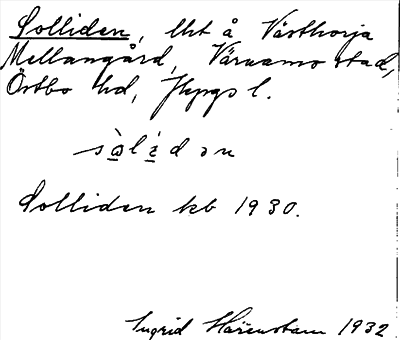 Solliden, lht å Västhorja
Mellangård, Värnamo stad,
Östbo hd, Jkpgs l.
sòlídən
Solliden kb 1930.
Ingrid Härenstam 1932